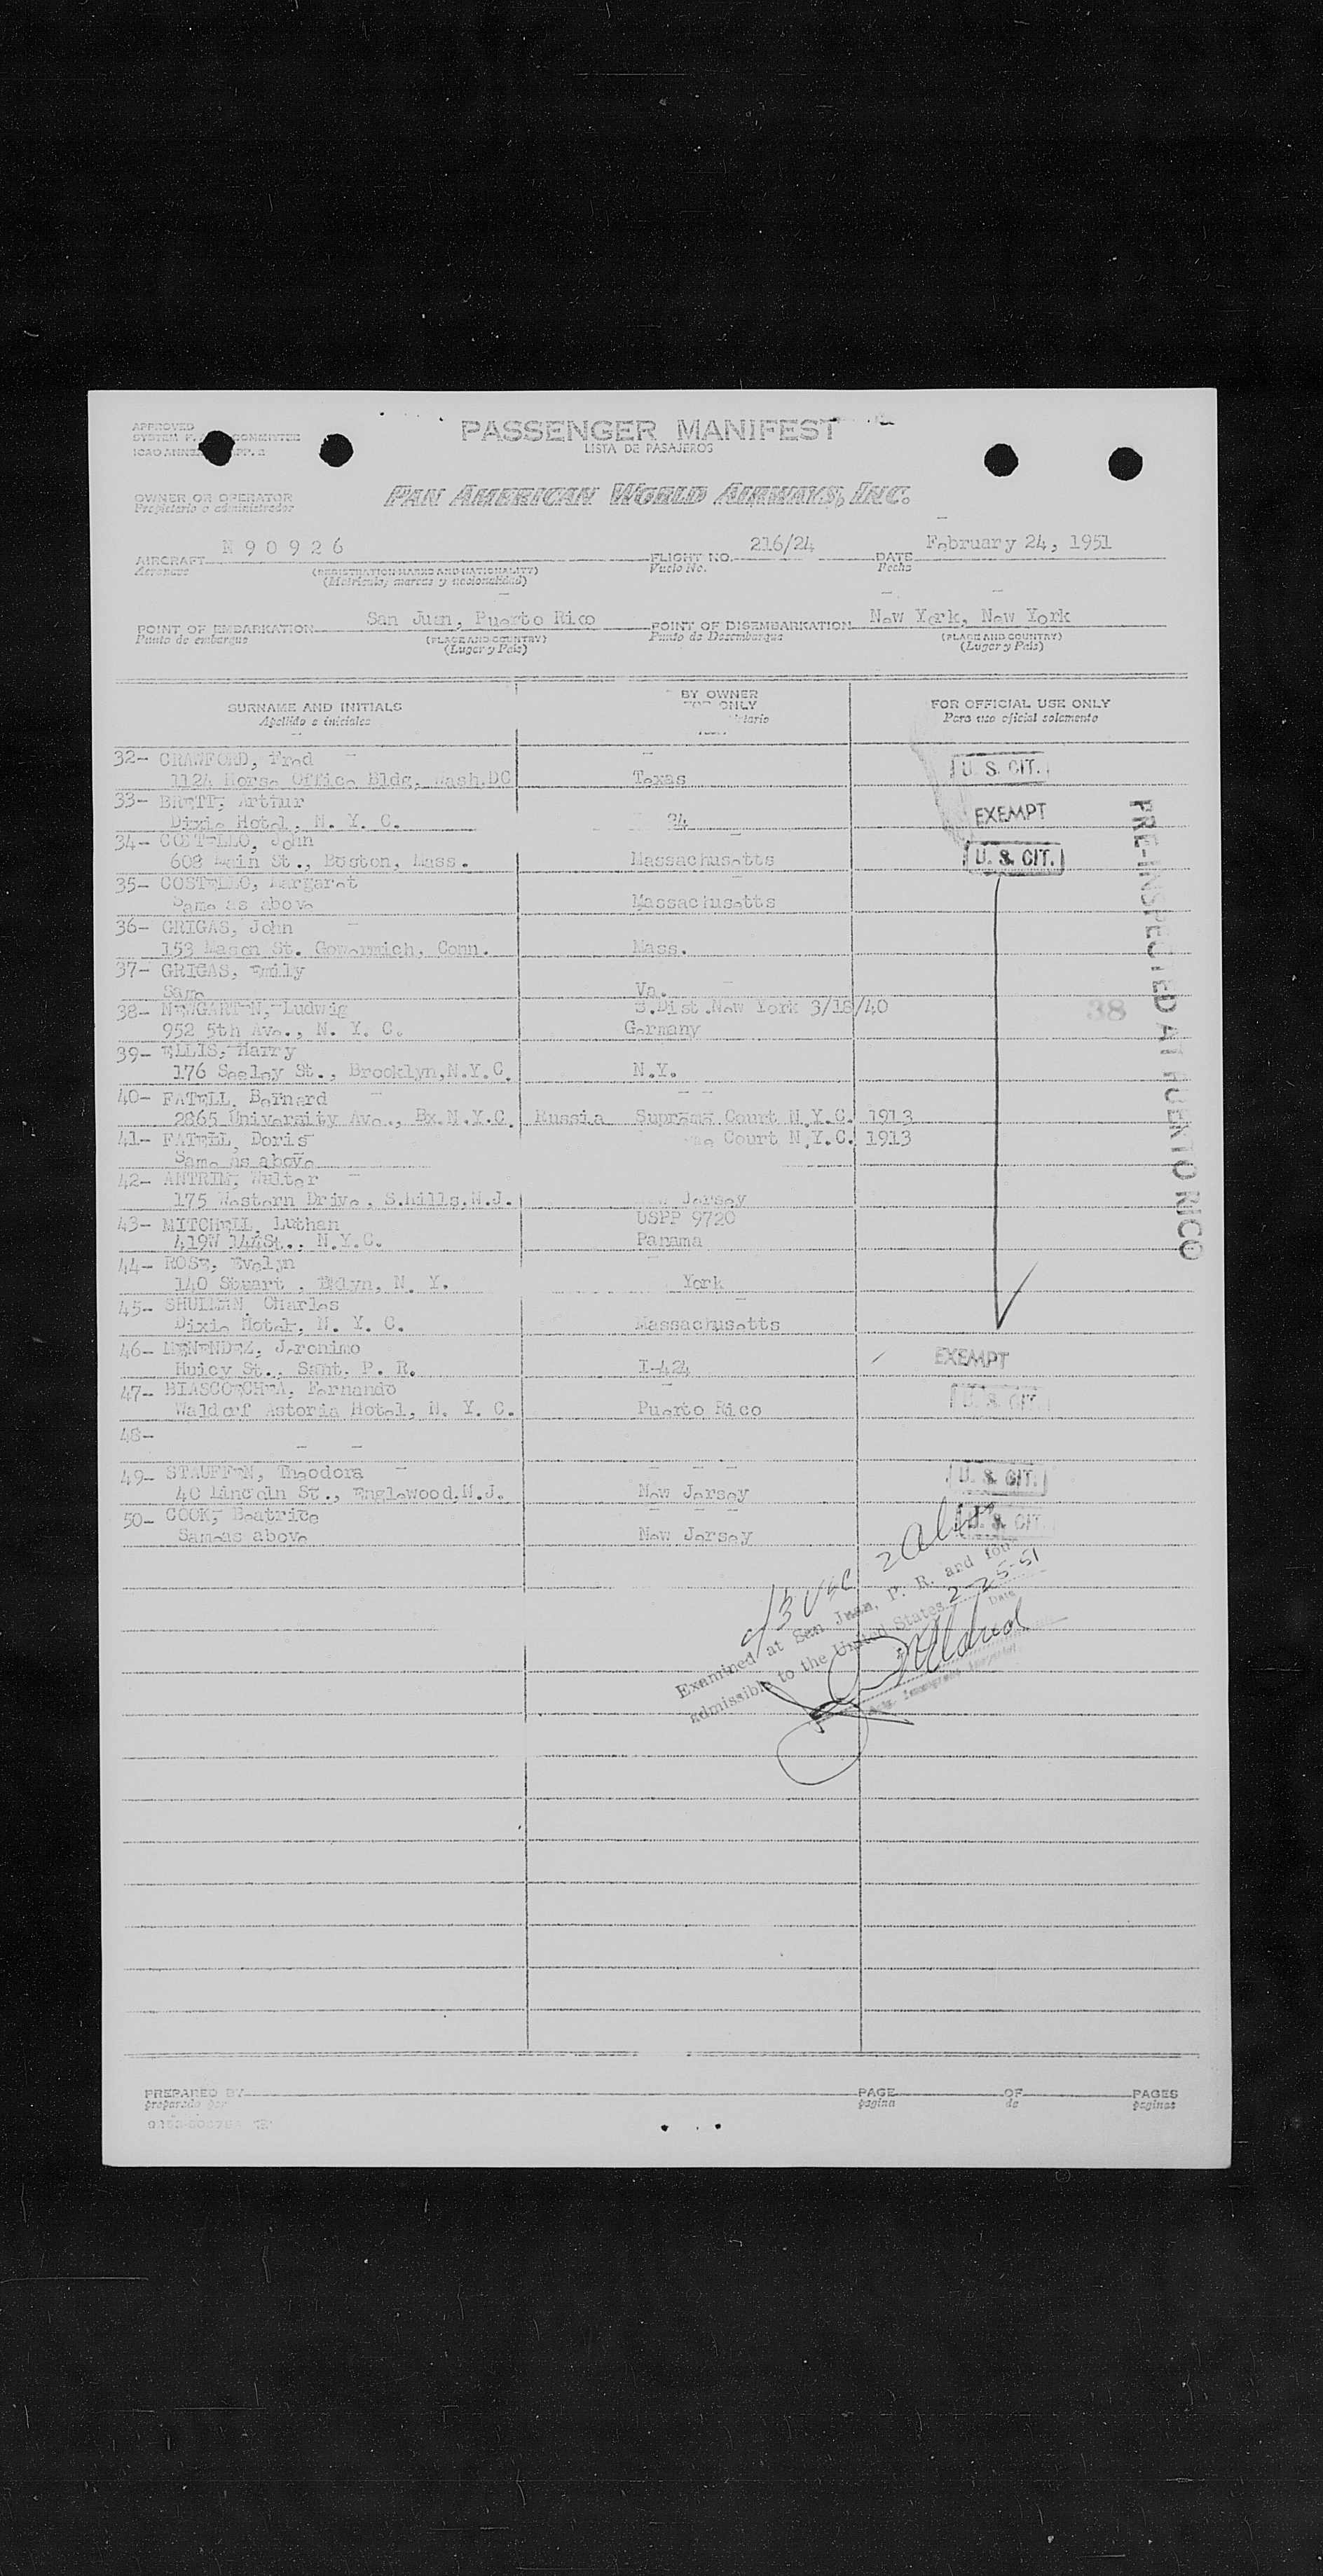 PASSENGER MANIFEST
LISTA DE PASAJEROS
APPROVED
COMMITTEE
OWNER OR OPERATOR
Propietario o administrador
PAN AMERICAN WORLD AIRWAYS, INC.
AIRCRAFT N 9 0 9 2 6 FLIGHT NO. 216/24 DATE February 24, 1951
Aeronave (REGISTRATION MARKS AND NATIONALITY) Vuelo No. Fecha
(Matricula, marcas y nacionalidad)
POINT OF EMBARKATION San Juan, Puerto Rico POINT OF DISEMBARKATION New York, New York
Punto de embarque (PLACE AND COUNTRY) Punto de Desembarque (PLACE AND COUNTRY)
(Lugar y Pais) (Lugar y Pais)
SURNAME AND INITIALS BY OWNER ONLY FOR OFFICIAL USE ONLY
Apellido e iniciales Para uso oficial solamente
32- CRAWFORD, Fred
112A Morse Office Bldg. Wash.DC Texas U. S. CIT.
33- BRETT, Arthur
Dixie Hotel, N. Y. C. 34 EXEMPT
34- COSTELLO, John
608 Main St., Boston, Mass. Massachusetts U. S. CIT.
35- COSTELLO, Margaret
Same as above Massachusetts
36- GRIGAS, John
153 Mason St. Conn. Mass.
37- GRIGAS, Emily
Same Va.
38- NEWGARTEN, Ludwig S.Dist.New York 3/18/40 38
952 5th Ave., N. Y. C. Germany
39- ELLIS, Harry
176 Seeley St., Brooklyn,N.Y.C. N.Y.
40- FATELL, Bernard
2865 University Ave., Bx.N.Y.C. Russia Supreme Court N.Y.C. 1913
41- FATELL, Doris Court N.Y.C. 1913
Same as above
42- ANTRIM, Walter
175 Western Drive, S.Hills,N.J. Jersey
43- MITCHELL, Luthan USPP 9720
419W 144St., N.Y.C. Panama
44- ROSE, Evelyn
140 Stuart, Bklyn, N. Y. York
45- SHULMAN, Charles
Dixie Hotel, N. Y. C. Massachusetts
46- MENENDEZ, Jeronimo
Huicy St., Sant. P. R. I-424 EXEMPT
47- BIASCOECHEA, Fernando
Waldorf Astoria Hotel, N. Y. C. Puerto Rico U. S. CIT.
48-
49- STAUFFEN, Theodora
40 Lincoln St., Englewood,N.J. New Jersey U. S. CIT.
50- COOK, Beatrice
Same as above New Jersey U. S. CIT.
PRE-INSPECTED AT PUERTO RICO
13 USC 2 Alien
Examined at San Juan, P. R. and found
admissible to the United States 2-25-51
Date
PREPARED BY PAGE OF PAGES
preparado por pagina de paginas